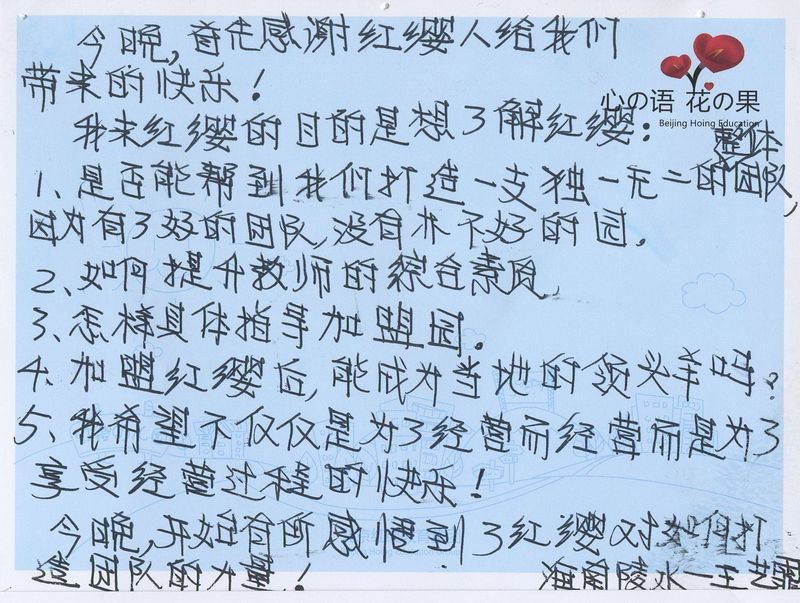 今晚,首先感谢红缨人给我们
带来的快乐!
心の语 花の果
Beijing Hoing Education
我来红缨的目的是想了解红缨:
整体
1、是否能帮到我们打造一支独一无二的团队,
因为有了好的团队,没有办不好的园。
2、如何提升教师的综合素质。
3、怎样具体指导加盟园。
4、加盟红缨后,能成为当地的领头羊吗?
5、我希望不仅仅是为了经营而经营而是为了
享受经营过程的快乐!
今晚,开始有所感悟到了红缨对如何打
造团队的力量!
海南陵水一王艺霏